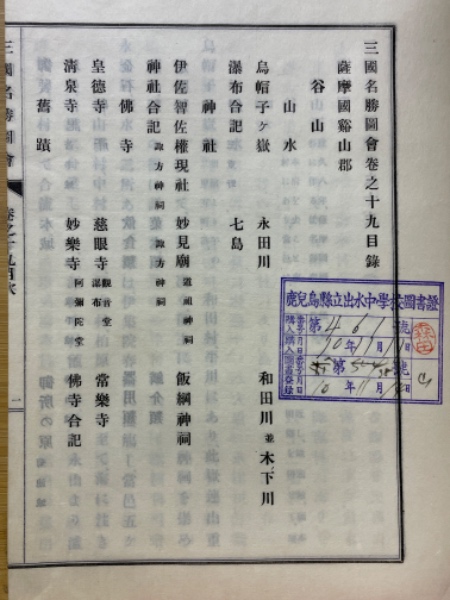 三國名勝圖會卷之十九目錄
薩摩國谿山郡
谷山
山水
烏帽子ヶ嶽 永田川 和田川 並 木下川
瀑布合記 七島
神社
伊佐智佐權現社 妙見廟 道祖神祠 飯綱神祠
神社合記 諏方神祠 諏方神祠
佛寺
皇德寺 慈眼寺 觀音堂 瀑布 常樂寺
清泉寺 妙樂寺 阿彌陀堂 佛寺合記
舊蹟
三國名勝圖會
卷之十九目次
一
鹿兒島縣立出水中學校圖書證
第461號
購入 10年11月1日
第 號
10年11月